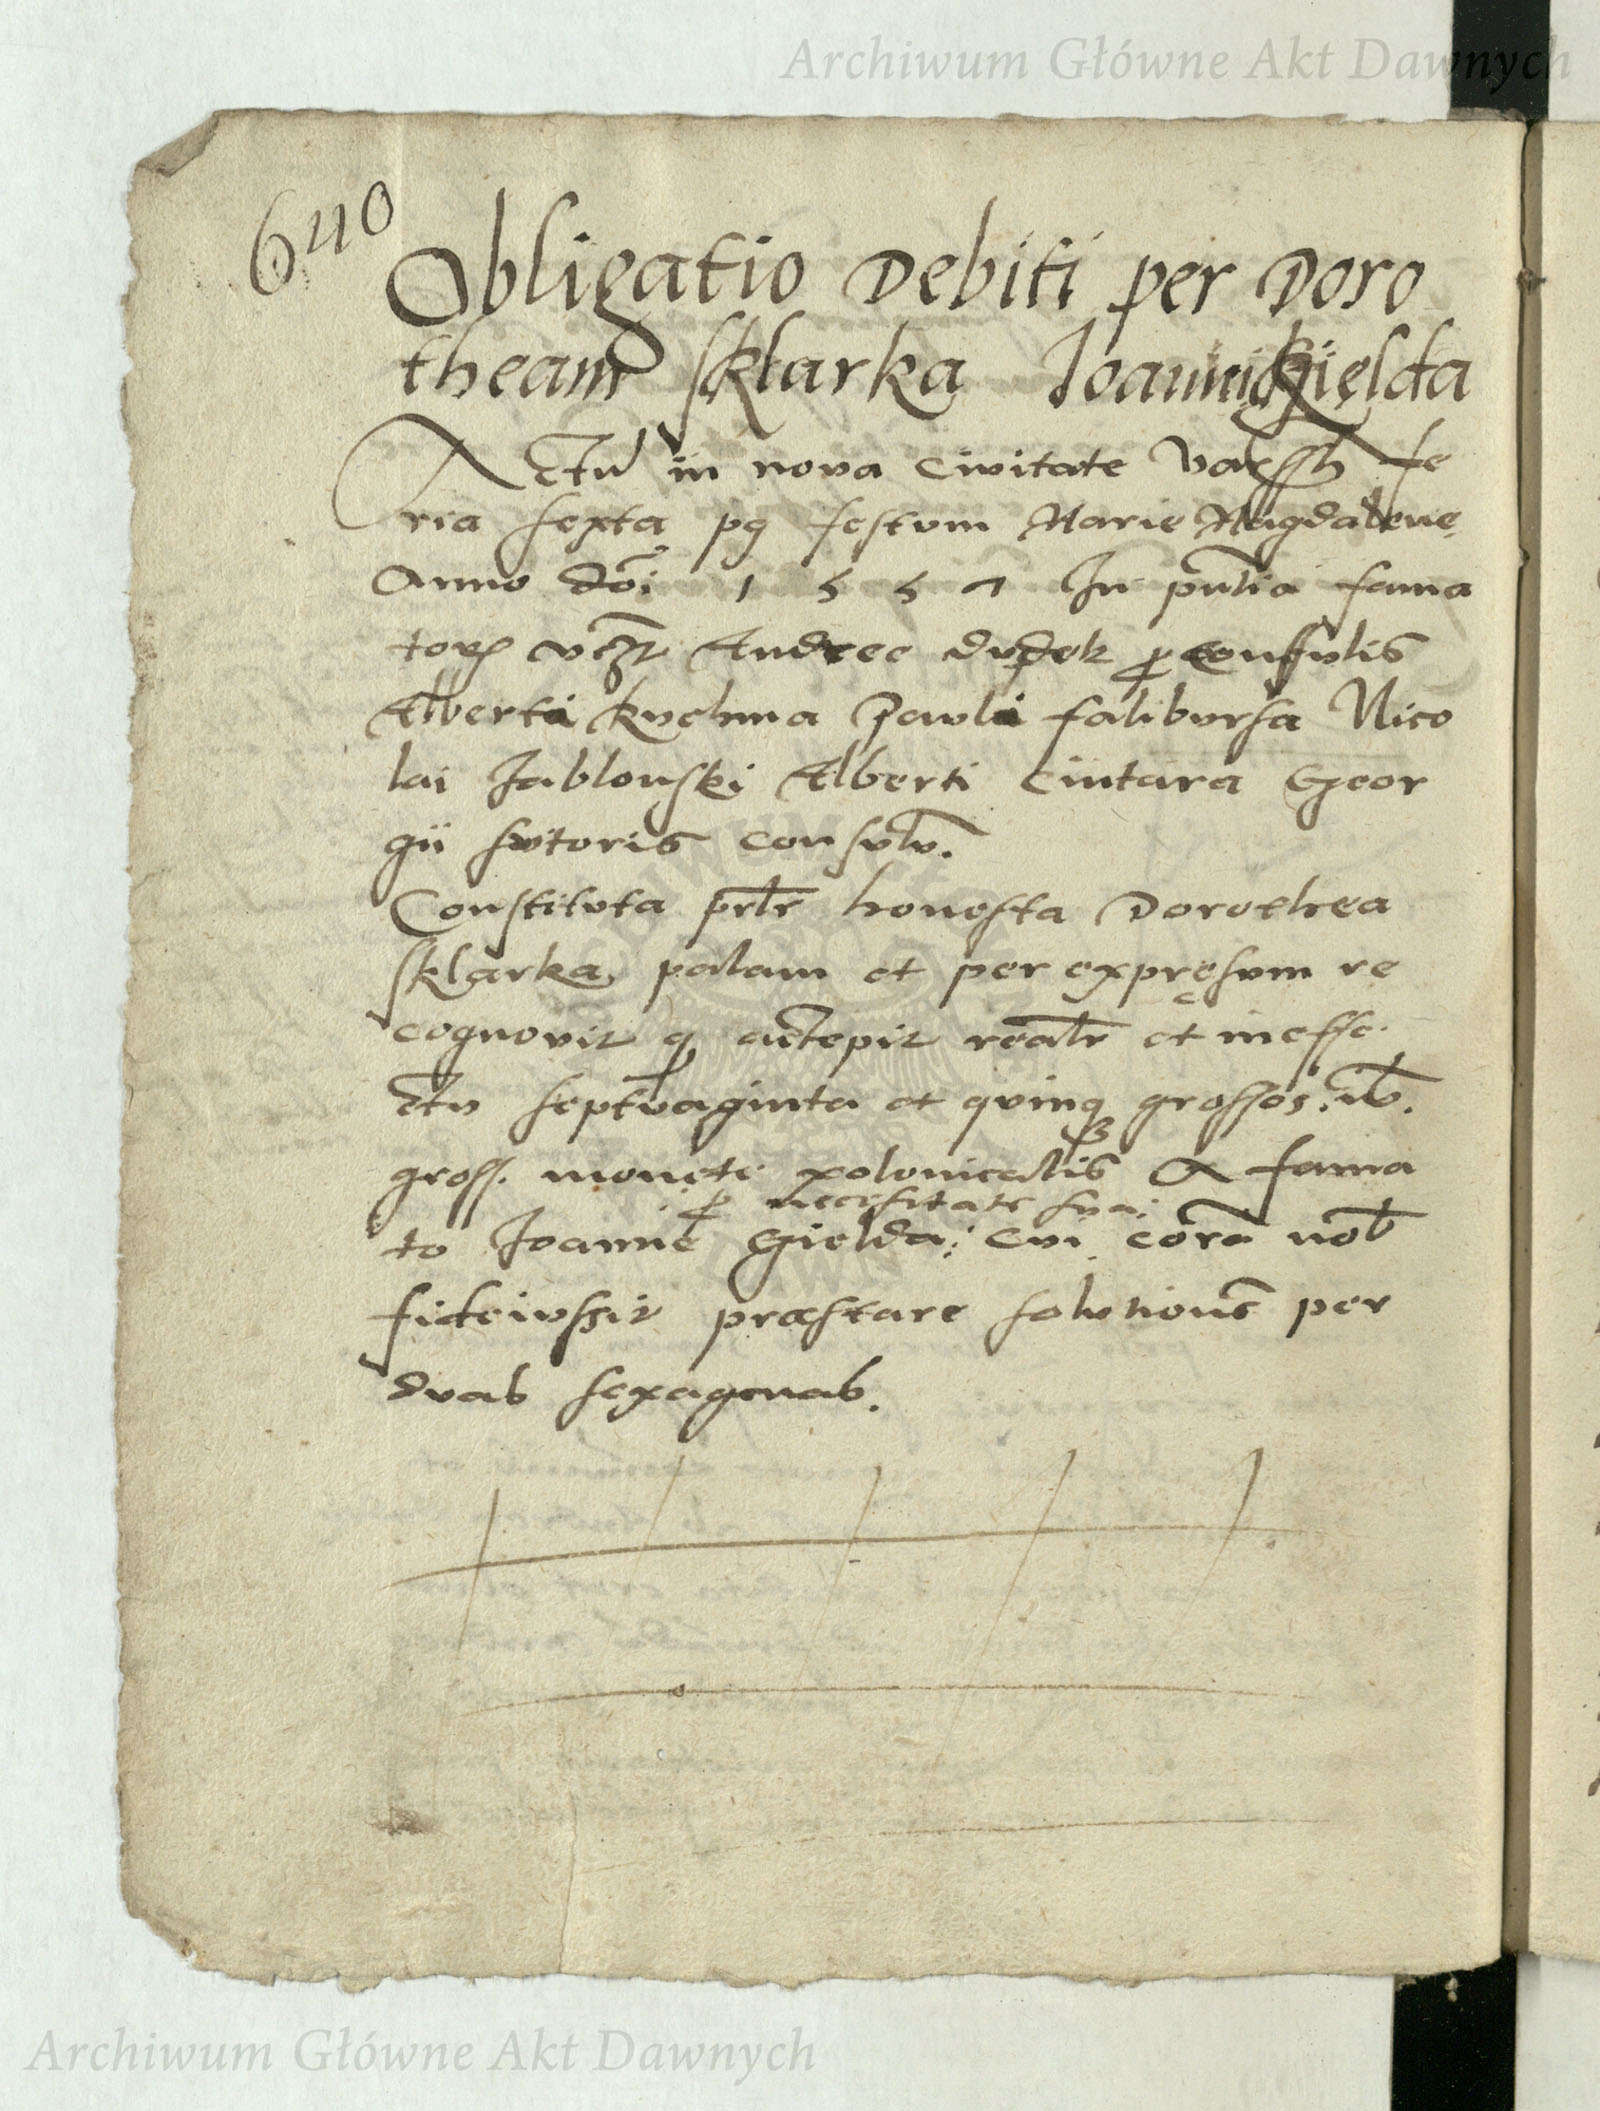 Archiwum Główne Akt Dawnych
640
Obligatio Debiti per Doro
theam Sklarka Joanni Gielda
Actu in nova Civitate Varssh fe
ria sexta pq festum Marie Magdalene
Anno doi 1 5 5 7 In pntia fama
tor Andree dudek proconsulis
Alberti kuchma Pauli falibursa Nico
lai Jablonski Alberti Cintara Geor
gii sutoris consulu.
Constituta prlr honesta Dorothea
Sklarka palam et per expresum re
cognovit q accepit realr et in effe
ctu septuaginta et quinq grossos.
gross. monete polonicalis a fama
p necessitate sua
to Joanne Gielda: Cui cora nob
fideiussit præstare solutione per
duas sexagenas.
Archiwum Główne Akt Dawnych